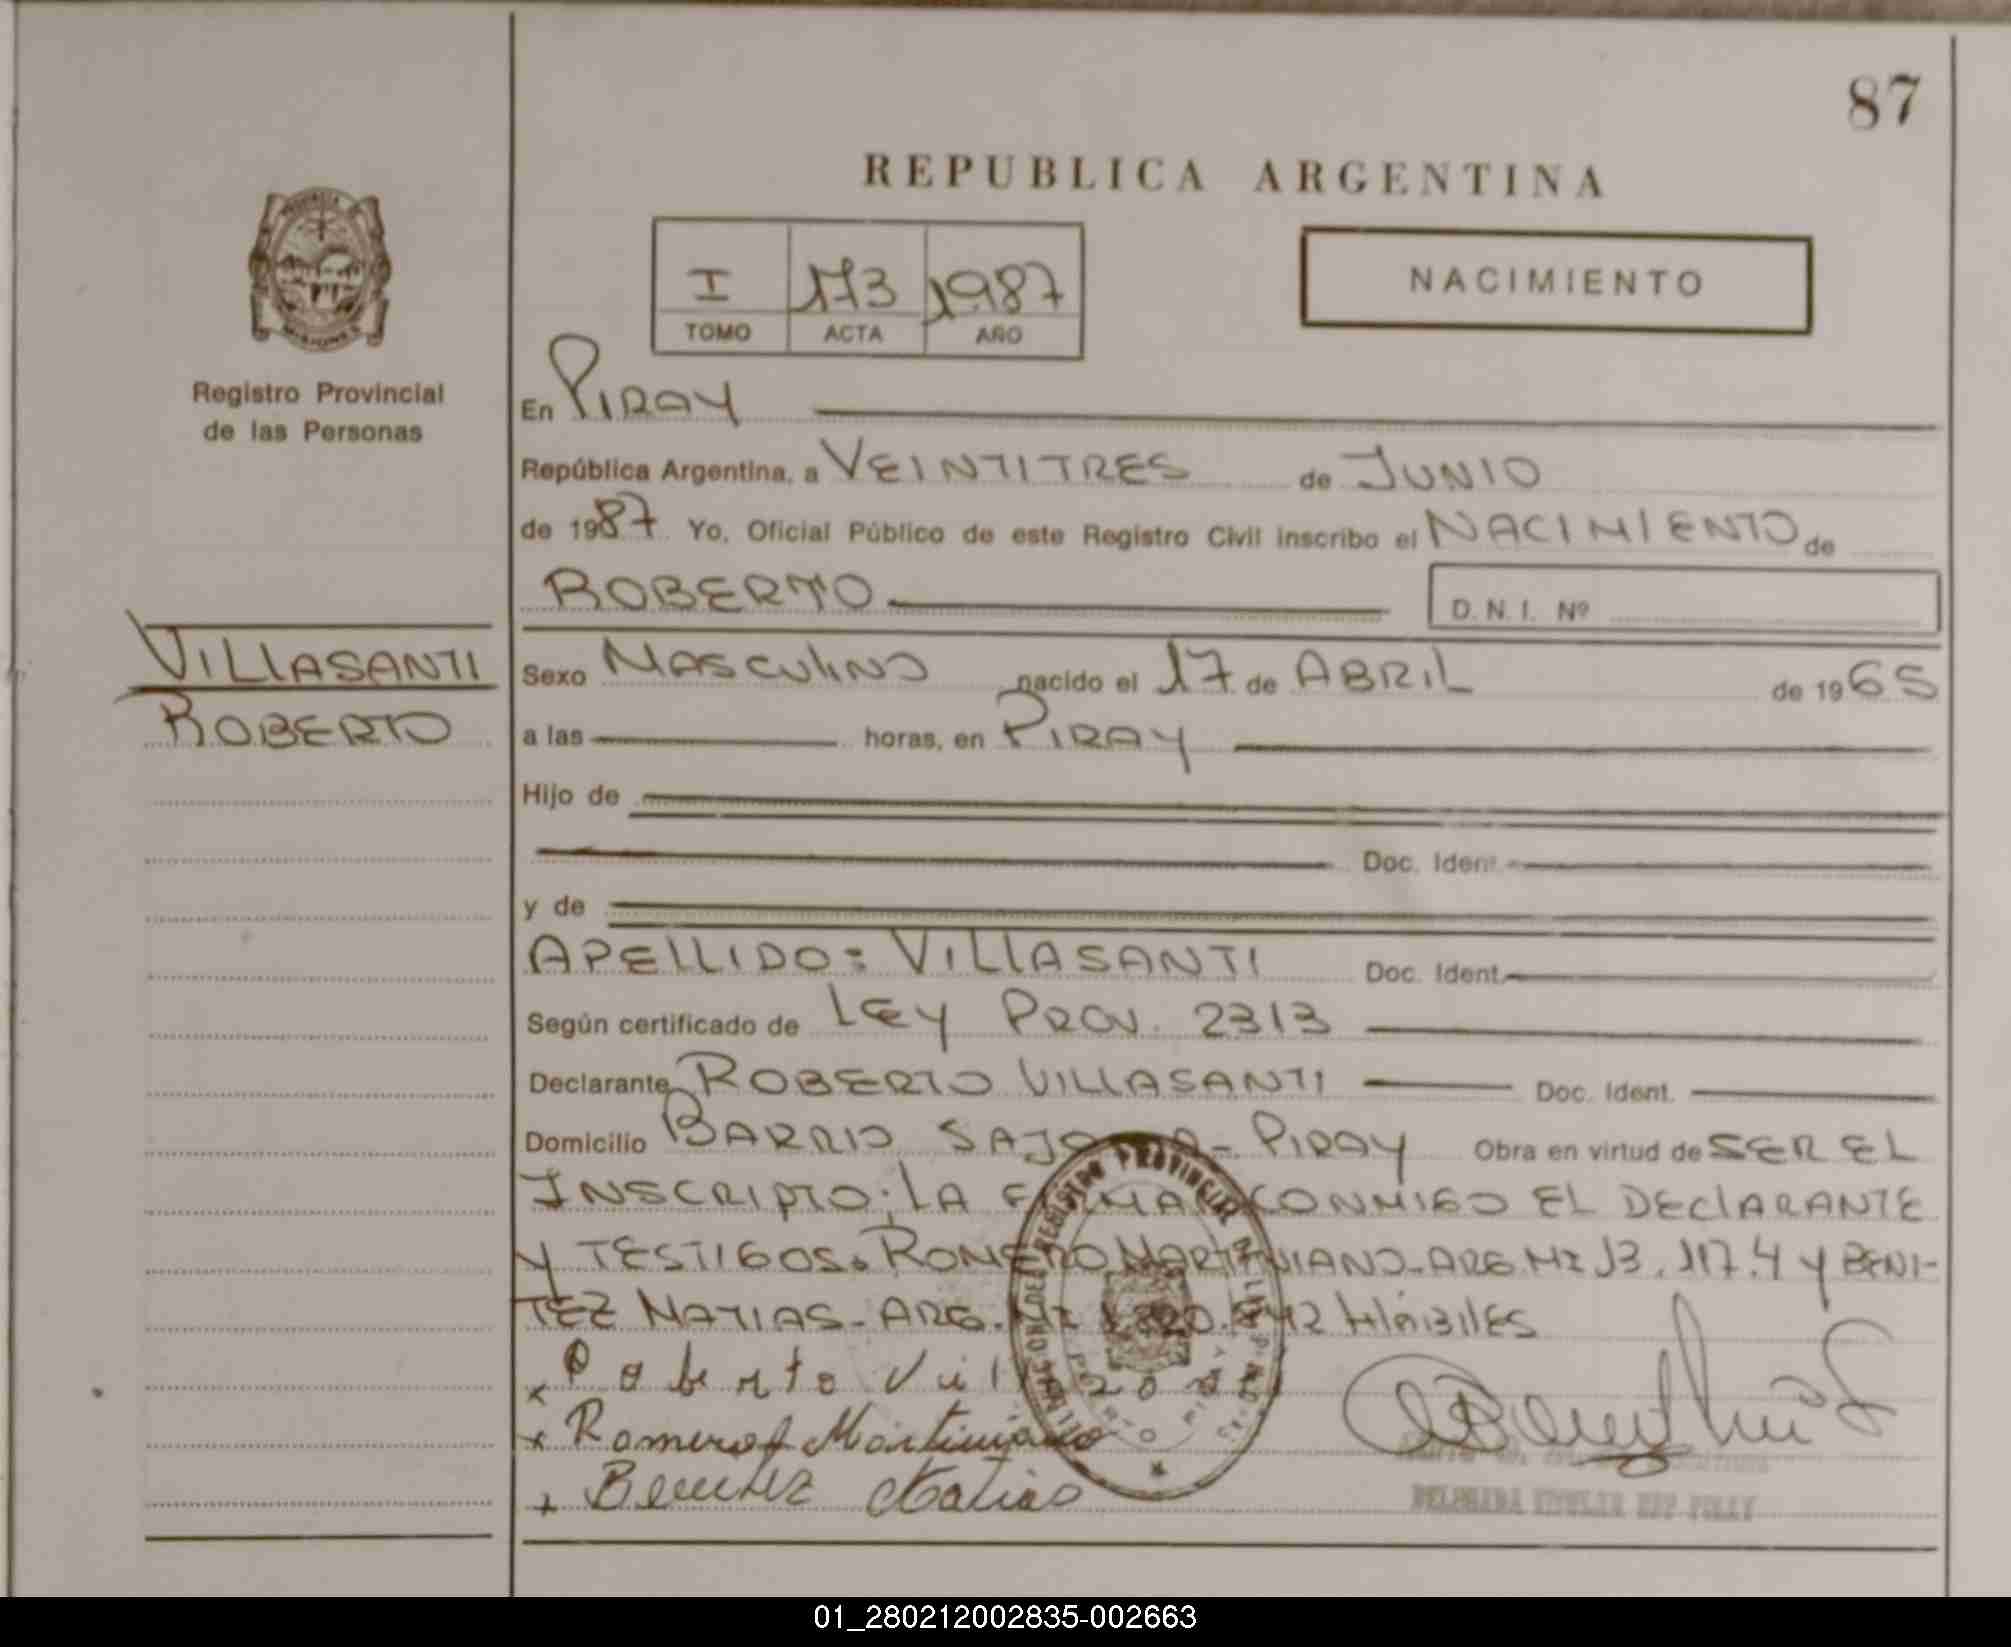 87
REPUBLICA ARGENTINA
I 173 1987
TOMO ACTA AÑO
NACIMIENTO
MISIONES
Registro Provincial
de las Personas
VILLASANTI
ROBERTO
En PIRAY
República Argentina, a VEINTITRES de JUNIO
de 1987 Yo, Oficial Público de este Registro Civil inscribo el NACIMIENTO de
ROBERTO
D. N. I. Nº
Sexo MASCULINO nacido el 17 de ABRIL de 1965
a las horas, en PIRAY
Hijo de
Doc. Ident.
y de
APELLIDO: VILLASANTI Doc. Ident.
Según certificado de LEY PROV. 2313
Declarante ROBERTO VILLASANTI Doc. Ident.
Domicilio BARRIO - PIRAY Obra en virtud de SER EL
INSCRIPTO. LA FIRMAN CONMIGO EL DECLARANTE
Y TESTIGOS. ROMERO MARTINIANO-ARG. MI 13.117.4 Y BENI-
TEZ MATIAS-ARG. HÁBILES
x Roberto
x Romero Martiniano
x Benitez Matias
REGISTRO PROVINCIAL DE LAS
PUERTO PIRAY
01_280212002835-002663